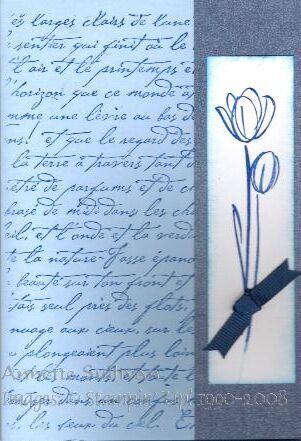 les larges clairs de lune
sentier qui finit où le
l'air et le printemps e
horizon que ce monde à
mme une lèvre au bas d
ns! et que le regard des
la terre à travers tant d
être de parfums et de c
de midi dans les cha
et l'onde et la verdu
te la nature fasse épano
beauté sur ton front et
seul près des flots,
nuage aux cieux, sur le
plongeaient plus loin
les feux du ciel. E
Images © Stampin' Up! 1990-2008